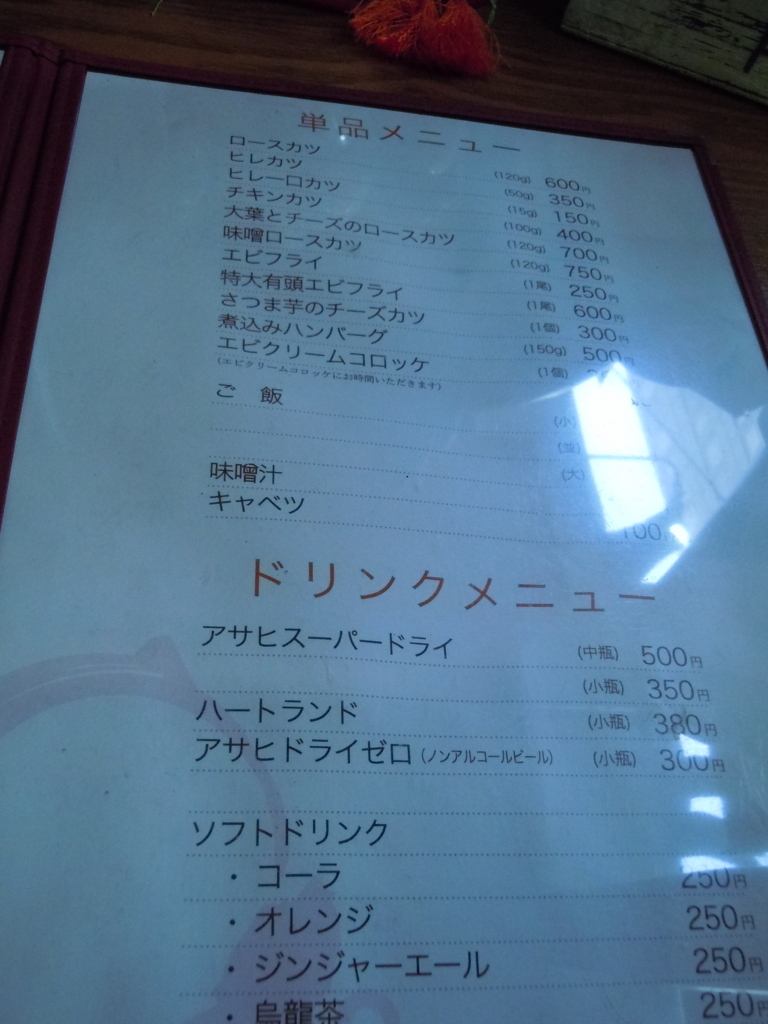 単品メニュー
ロースカツ (120g) 600円
ヒレカツ (50g) 350円
ヒレ一口カツ (15g) 150円
チキンカツ (100g) 400円
大葉とチーズのロースカツ (120g) 700円
味噌ロースカツ (120g) 750円
エビフライ (1尾) 250円
特大有頭エビフライ (1尾) 600円
さつま芋のチーズカツ (1個) 300円
煮込みハンバーグ (150g) 500円
エビクリームコロッケ (1個)
(エビクリームコロッケにお時間いただきます)
ご飯 (小)
(並)
(大)
味噌汁
キャベツ 100円
ドリンクメニュー
アサヒスーパードライ (中瓶) 500円
(小瓶) 350円
ハートランド (小瓶) 380円
アサヒドライゼロ (ノンアルコールビール) (小瓶) 300円
ソフトドリンク
・コーラ 250円
・オレンジ 250円
・ジンジャーエール 250円
・烏龍茶 250円